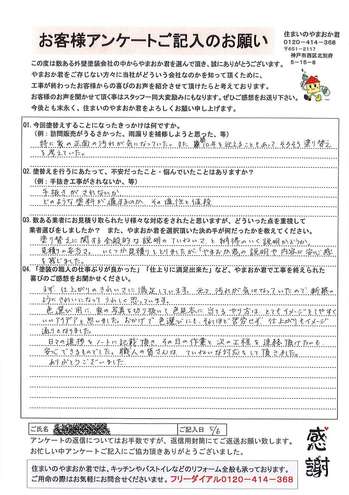 お客様アンケートご記入のお願い
住まいのやまおか君
0120-414-368
〒651-2117
神戸市西区北別府
5-15-8
この度は数ある外壁塗装会社の中からやまおか君を選んで頂き、誠にありがとうございます。
やまおか君をご存じない方々に当社がどういう会社なのかを知って頂くために、
工事が終わったお客様からの喜びのお声を紹介させて頂けたらと考えております。
お客様のお声を聞かせて頂く事はスタッフ一同大変励みにもなります。ぜひご感想をお送り下さい。
今後とも末永く、住まいのやまおか君をよろしくお願い申し上げます。
Q1. 今回塗替えすることになったきっかけは何ですか。
(例:訪問販売がうるさかった、雨漏りを補修しようと思った、等)
特に家の正面の汚れが気になっていた。また
を考えていた。
Q2. 塗替えを行うにあたって、不安だったこと・悩んでいたことはありますか?
(例:手抜き工事がされないか、等)
手抜きがされないか
どのような塗料が適するのか、その適性と値段
Q3. 数ある業者にお見積り取られたり様々な対応をされたと思いますが、どういった点を重視して
業者選びをしましたか? また、やまおか君を選択頂いた決め手が何だったかを教えてください。
塗り替えに関する全般的な説明のていねいさと納得のいく説明かどうか。
見積りの本当さ。いくつか見積りをとりましたが「やまおか君の説明や内容が安心感
を感じました。
Q4.「塗装の職人の仕事ぶりが良かった」「仕上りに満足出来た」など、やまおか君で工事を終えられた
喜びのご感想をお聞かせください。
まず、仕上がりのきれいさに満足しています。元々、汚れが気になっていたので新築の
ようにきれいになりうれしく思っています。
色選び用に、家の写真を切り抜いて色見本に当てるやり方は、とてもイメージをしやすく
いいアイデアと思いました。おかげで色選びにも、それほど苦労せず、仕上がりもイメージ
通りとなりました。
日々の進捗をノートに記載頂き、その日の作業と次の工程を連絡頂けたのも
安心できるものでした。職人の皆さんは、ていねいな対応をして頂きました。
ありがとうございました
ご氏名
ご記入日 5/6
アンケートの返信についてはお手数ですが、返信用封筒にてご返送お願い致します。
お忙しい中アンケートにご協力頂きありがとうございました。
感謝
住まいのやまおか君では、キッチンやバストイレなどのリフォーム全般も承っております。
ご用命の際はお気軽にお問合せくださいませ。フリーダイアル0120-414-368